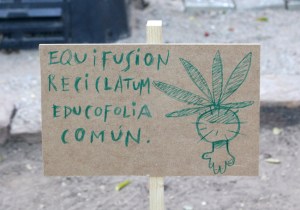 EQUIFUSION
RECICLATUM
EDUCOFOLIA
COMÚN.